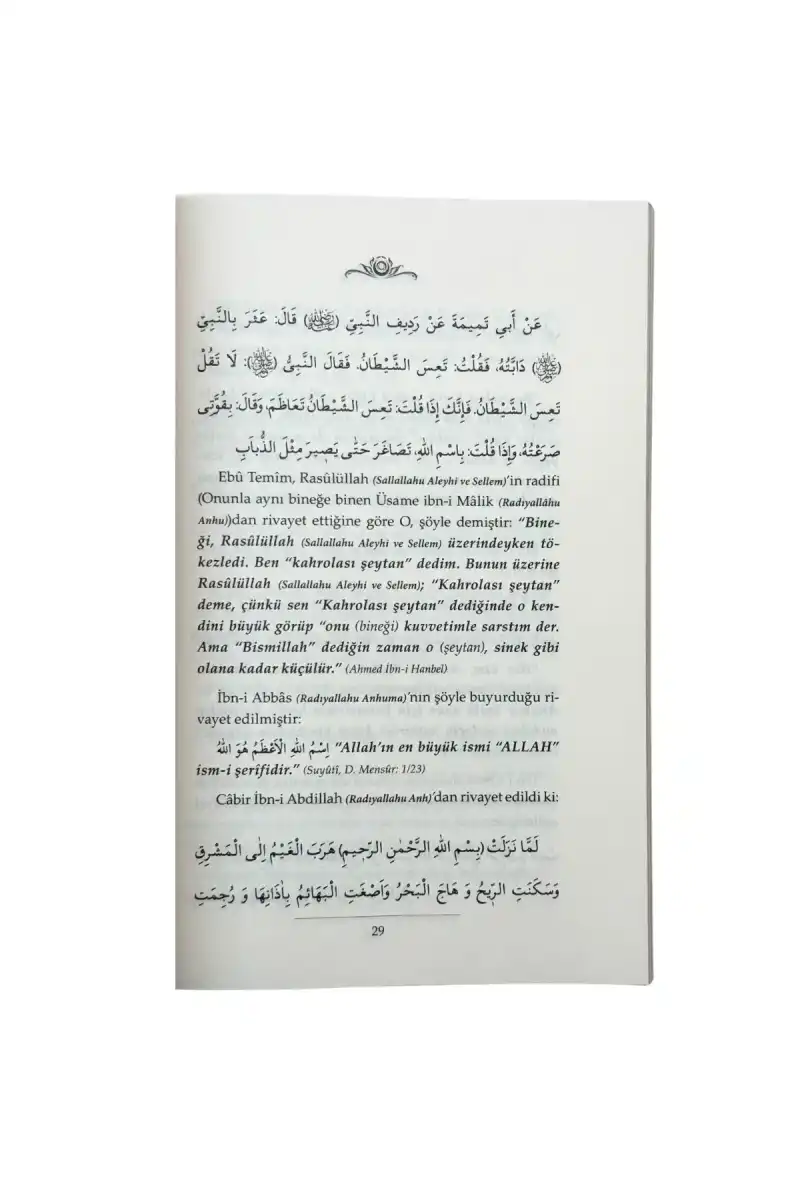 عَنْ أَبِي تَمِيمَةَ عَنْ رَدِيفِ النَّبِيِّ (ﷺ) قَالَ: عَثَرَ بِالنَّبِيِّ
(ﷺ) دَابَّتُهُ، فَقُلْتُ: تَعِسَ الشَّيْطَانُ، فَقَالَ النَّبِيُّ (ﷺ): لَا تَقُلْ
تَعِسَ الشَّيْطَانُ، فَإِنَّكَ إِذَا قُلْتَ: تَعِسَ الشَّيْطَانُ تَعَاظَمَ، وَقَالَ: بِقُوَّتِي
صَرَعْتُهُ، وَإِذَا قُلْتَ: بِاسْمِ اللهِ، تَصَاغَرَ حَتَّى يَصِيرَ مِثْلَ الذُّبَابِ
Ebû Temîm, Rasûlüllah (Sallallahu Aleyhi ve Sellem)'in radifi
(Onunla aynı bineğe binen Üsame ibn-i Mâlik (Radıyallâhu
Anhu))dan rivayet ettiğine göre O, şöyle demiştir: “Bine-
ği, Rasûlüllah (Sallallahu Aleyhi ve Sellem) üzerindeyken tö-
kezledi. Ben “kahrolası şeytan” dedim. Bunun üzerine
Rasûlüllah (Sallallahu Aleyhi ve Sellem); “Kahrolası şeytan”
deme, çünkü sen “Kahrolası şeytan” dediğinde o ken-
dini büyük görüp “onu (bineği) kuvvetimle sarstım der.
Ama “Bismillah” dediğin zaman o (şeytan), sinek gibi
olana kadar küçülür.” (Ahmed İbn-i Hanbel)
İbn-i Abbâs (Radıyallahu Anhuma)'nın şöyle buyurduğu ri-
vayet edilmiştir:
اِسْمُ اللهِ الْأَعْظَمُ هُوَ اللهُ “Allah'ın en büyük ismi “ALLAH”
ism-i şerifidir.” (Suyûtî, D. Mensûr: 1/23)
Câbir İbn-i Abdillah (Radıyallahu Anh)'dan rivayet edildi ki:
لَمَّا نَزَلَتْ (بِسْمِ اللهِ الرَّحْمٰنِ الرَّحِيمِ) هَرَبَ الْغَيْمُ إِلَى الْمَشْرِقِ
وَسَكَنَتِ الرِّيحُ وَ هَاجَ الْبَحْرُ وَاَصْغَتِ الْبَهَائِمُ بِاٰذَانِهَا وَ رُجِمَتِ
29